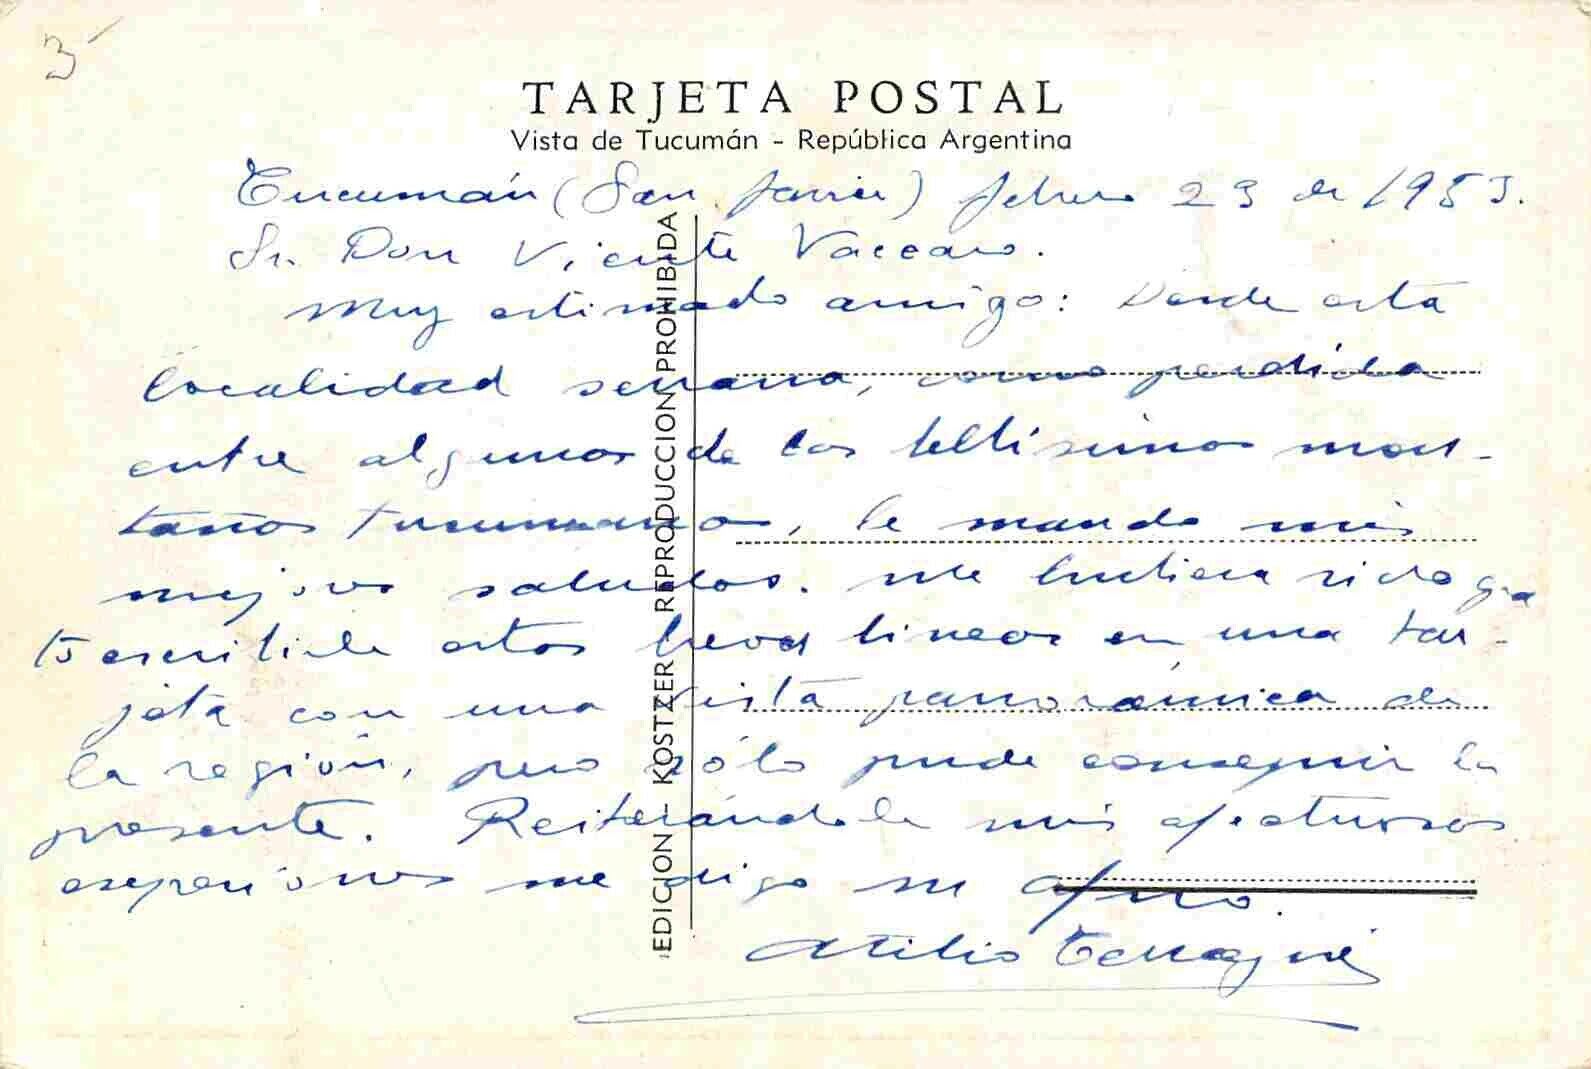 3
TARJETA POSTAL
Vista de Tucumán - República Argentina
Tucumán (San Javier) febrero 23 de 1953.
Sr. Don Vicente Vaccaro.
Muy estimado amigo: Desde esta
localidad serrana, como perdida
entre algunos de los bellísimos mon-
taños tucumanos, le mando mis
mejores saludos. Me hubiera sido gra
to escribirle estas breves lineas en una tar-
jeta con una vista panorámica de
la región, pero sólo pude conseguir la
presente. Reiterándole mis afectuosos
expresiones me digo su afmo.
Atilio
EDICION - KOSTZER REPRODUCCION PROHIBIDA